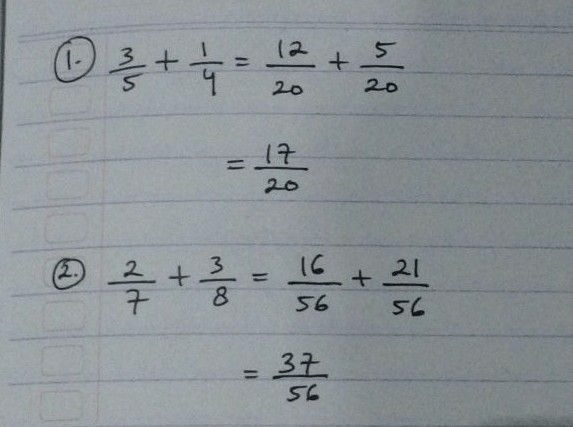 1. 3/5 + 1/4 = 12/20 + 5/20
= 17/20
2. 2/7 + 3/8 = 16/56 + 21/56
= 37/56